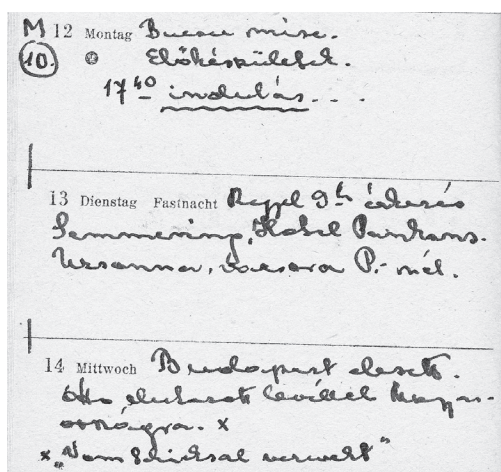 M 12 Montag Bucsu mise.
10. Előkészületek.
17 40 indulás...
13 Dienstag Fastnacht Reggel 9h érkezés
Semmering, Hotel Panhans.
Uzsonna, vacsora P.-nél.
14 Mittwoch Budapest elesett.
Otto elutazott levéllel Magyar-
országra. x
x "Vom Schicksal verweht"